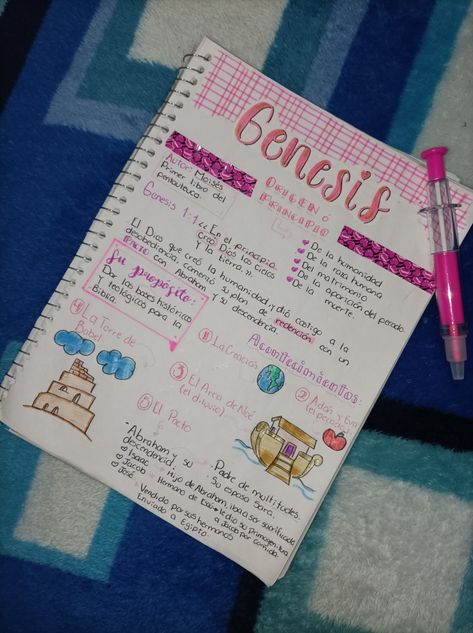 Genesis
ORIGEN Ó
PRINCIPIO
Autor: Moisés
Primer libro del
pentateuco.
♥ De la humanidad
♥ De la raza humana
♥ Del matrimonio
♥ De la aparición del pecado
♥ De la muerte.
Genesis 1:1 << En el principio
creó Dios los cielos
y la tierra >>.
El Dios que creó la humanidad, y dió castigo a la
desobediencia, comenzó su plan de redención con un
PACTO con Abraham y su descendencia.
Su propósito:
Dar las bases históricas
Y teológicas para la
Biblia.
Acontecimientos:
① La Creación
② Adán y Eva
(el pecado)
③ El Arca de Noé
(el diluvio)
④ La Torre de
Babel
⑤ El Pacto
· Abraham y su
descendencia.
· Padre de multitudes,
Su esposa Sara.
♡ Isaac · Hijo de Abraham, iba a ser sacrificado
♡ Jacob · Hermano de Esaú le dio su primogenitura
a Jacob por comida.
♡ José · Vendido por sus hermanos
Enviado a Egipto.